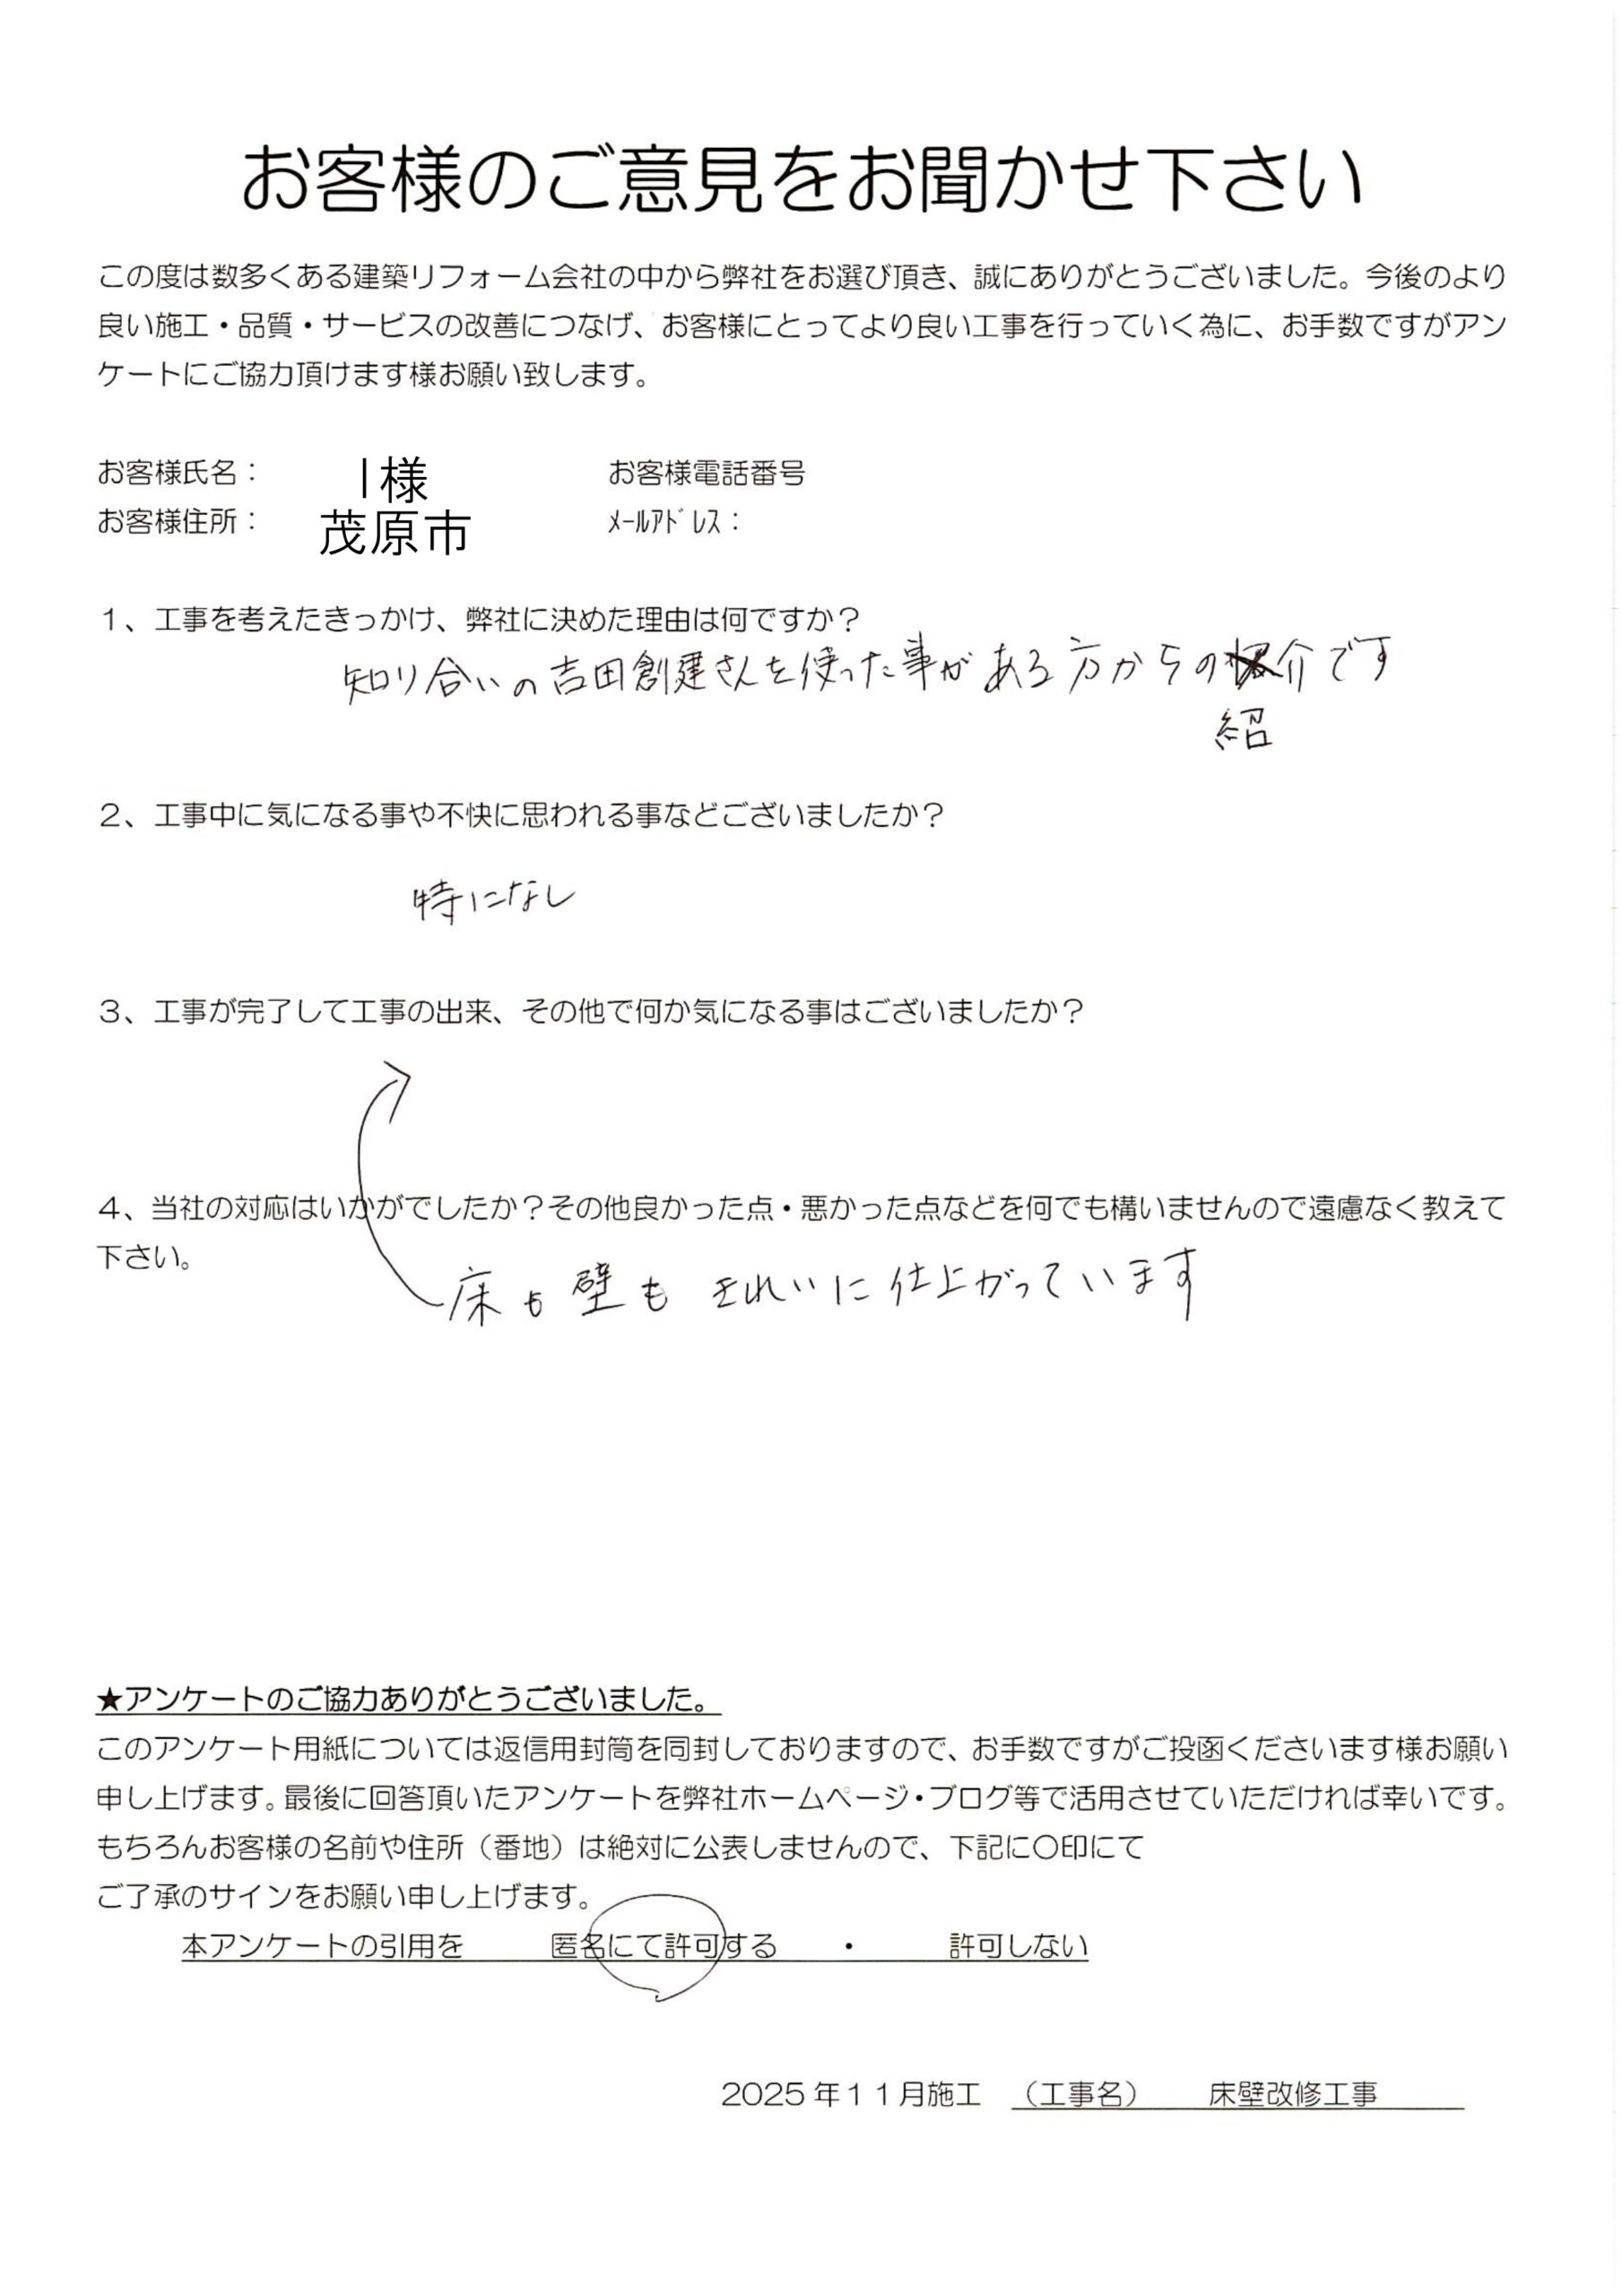 お客様のご意見をお聞かせ下さい
この度は数多くある建築リフォーム会社の中から弊社をお選び頂き、誠にありがとうございました。今後のより
良い施工・品質・サービスの改善につなげ、お客様にとってより良い工事を行っていく為に、お手数ですがアン
ケートにご協力頂けます様お願い致します。
お客様氏名： I様 お客様電話番号
お客様住所： 茂原市 ﾒｰﾙｱﾄﾞﾚｽ：
1、工事を考えたきっかけ、弊社に決めた理由は何ですか？
知り合いの吉田創建さんを使った事がある方からの介です
紹
2、工事中に気になる事や不快に思われる事などございましたか？
特になし
3、工事が完了して工事の出来、その他で何か気になる事はございましたか？
4、当社の対応はいかがでしたか？その他良かった点・悪かった点などを何でも構いませんので遠慮なく教えて
下さい。
床も壁もきれいに仕上がっています
★アンケートのご協力ありがとうございました。
このアンケート用紙については返信用封筒を同封しておりますので、お手数ですがご投函くださいます様お願い
申し上げます。最後に回答頂いたアンケートを弊社ホームページ・ブログ等で活用させていただければ幸いです。
もちろんお客様の名前や住所（番地）は絶対に公表しませんので、下記に〇印にて
ご了承のサインをお願い申し上げます。
本アンケートの引用を 匿名にて許可する ・ 許可しない
2025年11月施工 （工事名） 床壁改修工事